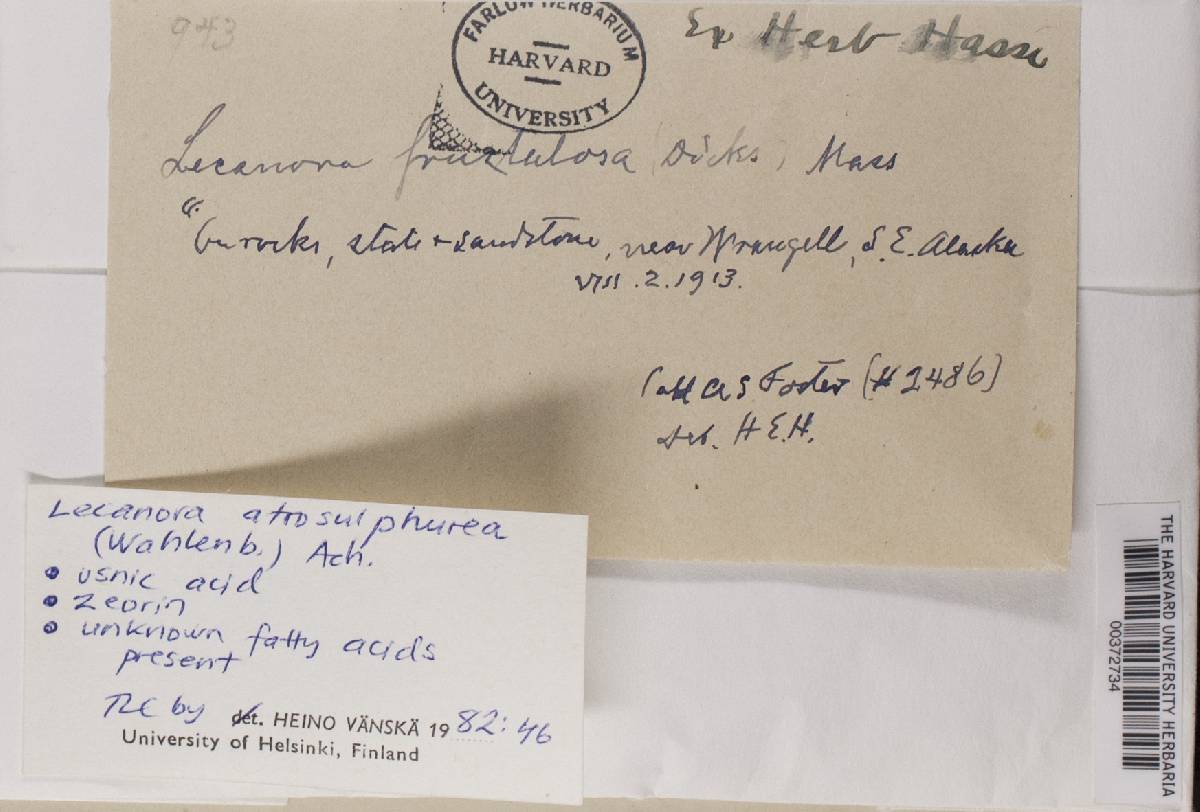 943
FARLOW HERBARIUM
HARVARD
UNIVERSITY
Ex Herb Hasse
Lecanora frustulosa (Dicks) Mass
"On rocks, slate + sandstone, near Wrangell, S. E. Alaska
VIII. 2. 1913.
Coll A S Foster (# 2486)
Det. H E. H.
Lecanora atrosulphurea
(Wahlenb.) Ach.
• usnic acid
• zeorin
• unknown fatty acids
present
TLC by det. HEINO VÄNSKÄ 1982: 46
University of Helsinki, Finland
THE HARVARD UNIVERSITY HERBARIA
00372734